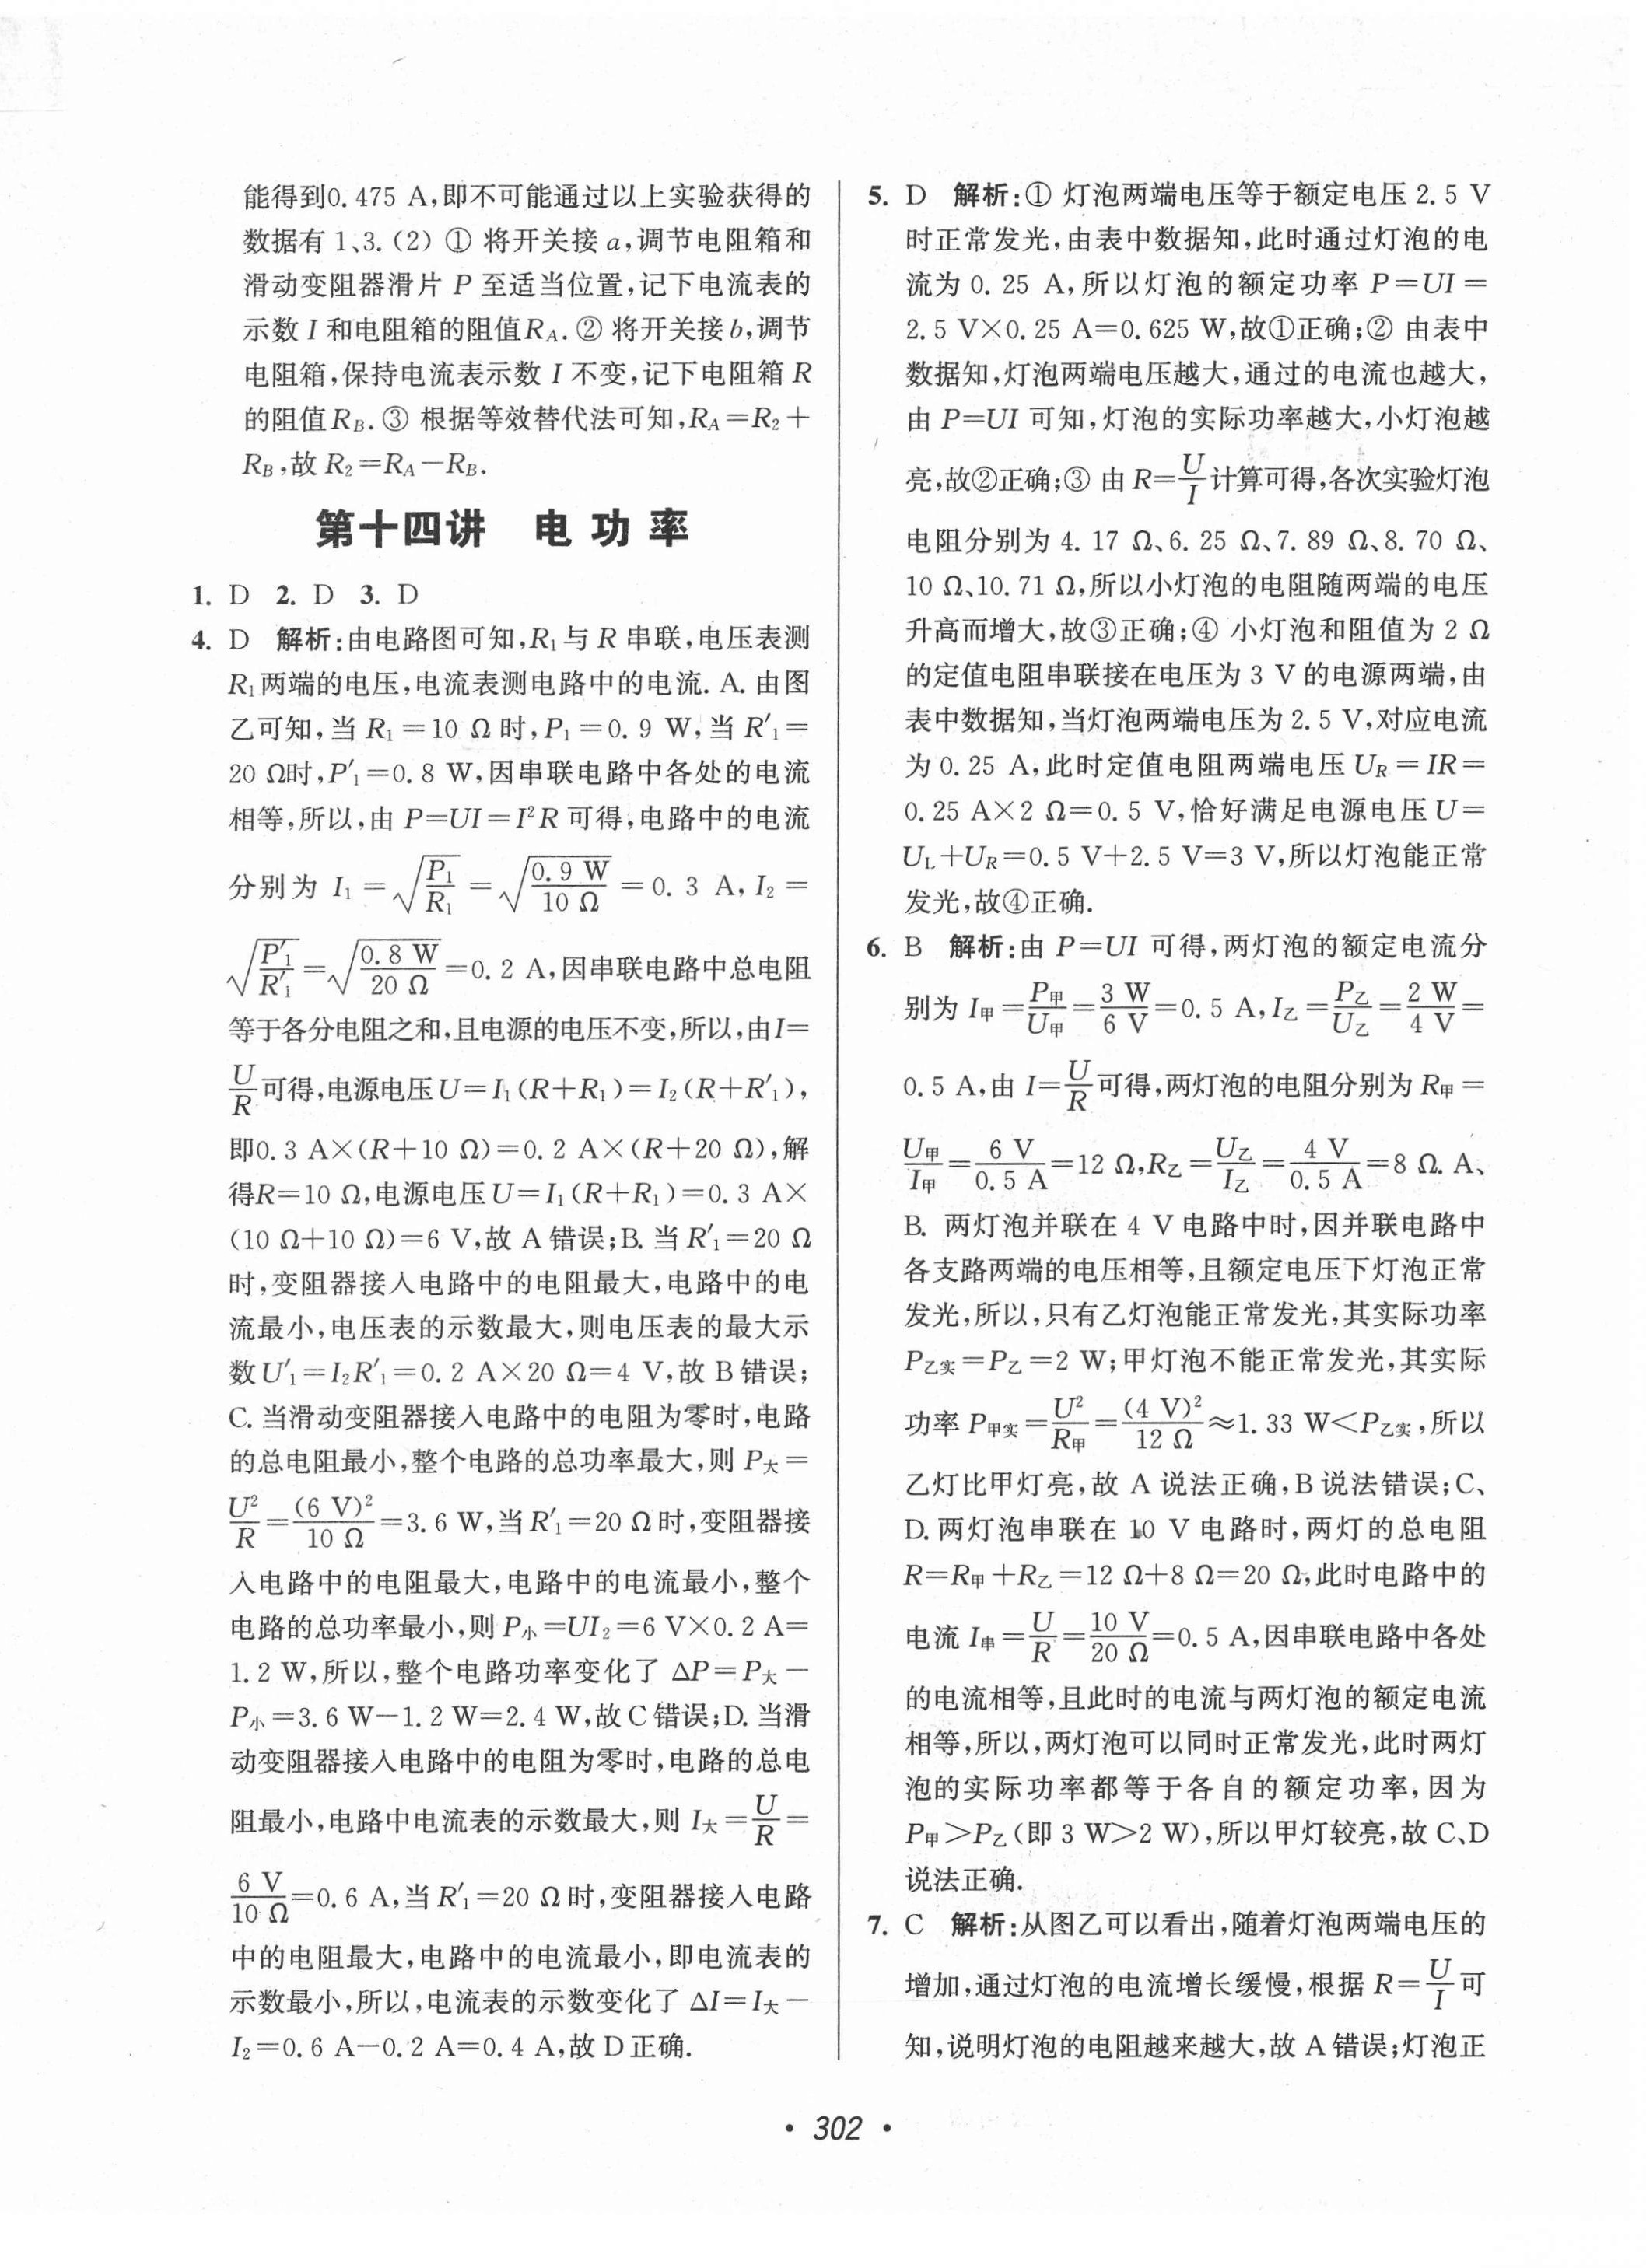 能得到0.475 A,即不可能通过以上实验获得的
数据有 1、3.(2) ① 将开关接 a,调节电阻箱和
滑动变阻器滑片 P 至适当位置,记下电流表的
示数 I 和电阻箱的阻值R_A.② 将开关接 b,调节
电阻箱,保持电流表示数 I 不变,记下电阻箱 R
的阻值R_B.③ 根据等效替代法可知,R_A=R₂+
R_B,故 R₂=R_A-R_B.
第十四讲 电功率
1. D 2. D 3. D
4. D 解析:由电路图可知,R₁与 R 串联,电压表测
R₁两端的电压,电流表测电路中的电流. A. 由图
乙可知,当 R₁=10 Ω时,P₁=0.9 W,当 R′₁=
20 Ω时,P′₁=0.8 W,因串联电路中各处的电流
相等,所以,由 P=UI=I²R 可得,电路中的电流
分别为 I₁=√(P₁/R₁)=√(0.9 W/10 Ω)=0.3 A,I₂=
√(P′₁/R′₁)=√(0.8 W/20 Ω)=0.2 A,因串联电路中总电阻
等于各分电阻之和,且电源的电压不变,所以,由I=
U/R可得,电源电压U=I₁(R+R₁)=I₂(R+R′₁),
即0.3 A×(R+10 Ω)=0.2 A×(R+20 Ω),解
得R=10 Ω,电源电压U=I₁(R+R₁)=0.3 A×
(10 Ω+10 Ω)=6 V,故 A 错误;B. 当 R′₁=20 Ω
时,变阻器接入电路中的电阻最大,电路中的电
流最小,电压表的示数最大,则电压表的最大示
数U′₁=I₂R′₁=0.2 A×20 Ω=4 V,故 B 错误;
C. 当滑动变阻器接入电路中的电阻为零时,电路
的总电阻最小,整个电路的总功率最大,则 P大=
U²/R=(6 V)²/10 Ω=3.6 W,当 R′₁=20 Ω时,变阻器接
入电路中的电阻最大,电路中的电流最小,整个
电路的总功率最小,则 P小=UI₂=6 V×0.2 A=
1.2 W,所以,整个电路功率变化了 ΔP=P大-
P小=3.6 W-1.2 W=2.4 W,故 C 错误;D. 当滑
动变阻器接入电路中的电阻为零时,电路的总电
阻最小,电路中电流表的示数最大,则 I大=U/R=
6 V/10 Ω=0.6 A,当 R′₁=20 Ω时,变阻器接入电路
中的电阻最大,电路中的电流最小,即电流表的
示数最小,所以,电流表的示数变化了 ΔI=I大-
I₂=0.6 A-0.2 A=0.4 A,故 D 正确.
5. D 解析:① 灯泡两端电压等于额定电压 2.5 V
时正常发光,由表中数据知,此时通过灯泡的电
流为 0.25 A,所以灯泡的额定功率 P=UI=
2.5 V×0.25 A=0.625 W,故①正确;② 由表中
数据知,灯泡两端电压越大,通过的电流也越大,
由 P=UI 可知,灯泡的实际功率越大,小灯泡越
亮,故②正确;③ 由 R=U/I计算可得,各次实验灯泡
电阻分别为 4.17 Ω、6.25 Ω、7.89 Ω、8.70 Ω、
10 Ω、10.71 Ω,所以小灯泡的电阻随两端的电压
升高而增大,故③正确;④ 小灯泡和阻值为 2 Ω
的定值电阻串联接在电压为 3 V 的电源两端,由
表中数据知,当灯泡两端电压为 2.5 V,对应电流
为 0.25 A,此时定值电阻两端电压 U_R=IR=
0.25 A×2 Ω=0.5 V,恰好满足电源电压 U=
U_L+U_R=0.5 V+2.5 V=3 V,所以灯泡能正常
发光,故④正确.
6. B 解析:由 P=UI 可得,两灯泡的额定电流分
别为 I甲=P甲/U甲=3 W/6 V=0.5 A,I乙=P乙/U乙=2 W/4 V=
0.5 A,由 I=U/R可得,两灯泡的电阻分别为 R甲=
U甲/I甲=6 V/0.5 A=12 Ω,R乙=U乙/I乙=4 V/0.5 A=8 Ω. A、
B. 两灯泡并联在 4 V 电路中时,因并联电路中
各支路两端的电压相等,且额定电压下灯泡正常
发光,所以,只有乙灯泡能正常发光,其实际功率
P乙实=P乙=2 W;甲灯泡不能正常发光,其实际
功率 P甲实=U²/R甲=(4 V)²/12 Ω≈1.33 W<P乙实,所以
乙灯比甲灯亮,故 A 说法正确,B 说法错误;C、
D. 两灯泡串联在 10 V 电路时,两灯的总电阻
R=R甲+R乙=12 Ω+8 Ω=20 Ω,此时电路中的
电流 I串=U/R=10 V/20 Ω=0.5 A,因串联电路中各处
的电流相等,且此时的电流与两灯泡的额定电流
相等,所以,两灯泡可以同时正常发光,此时两灯
泡的实际功率都等于各自的额定功率,因为
P甲>P乙(即 3 W>2 W),所以甲灯较亮,故 C、D
说法正确.
7. C 解析:从图乙可以看出,随着灯泡两端电压的
增加,通过灯泡的电流增长缓慢,根据 R=U/I可
知,说明灯泡的电阻越来越大,故 A 错误;灯泡正
• 302 •